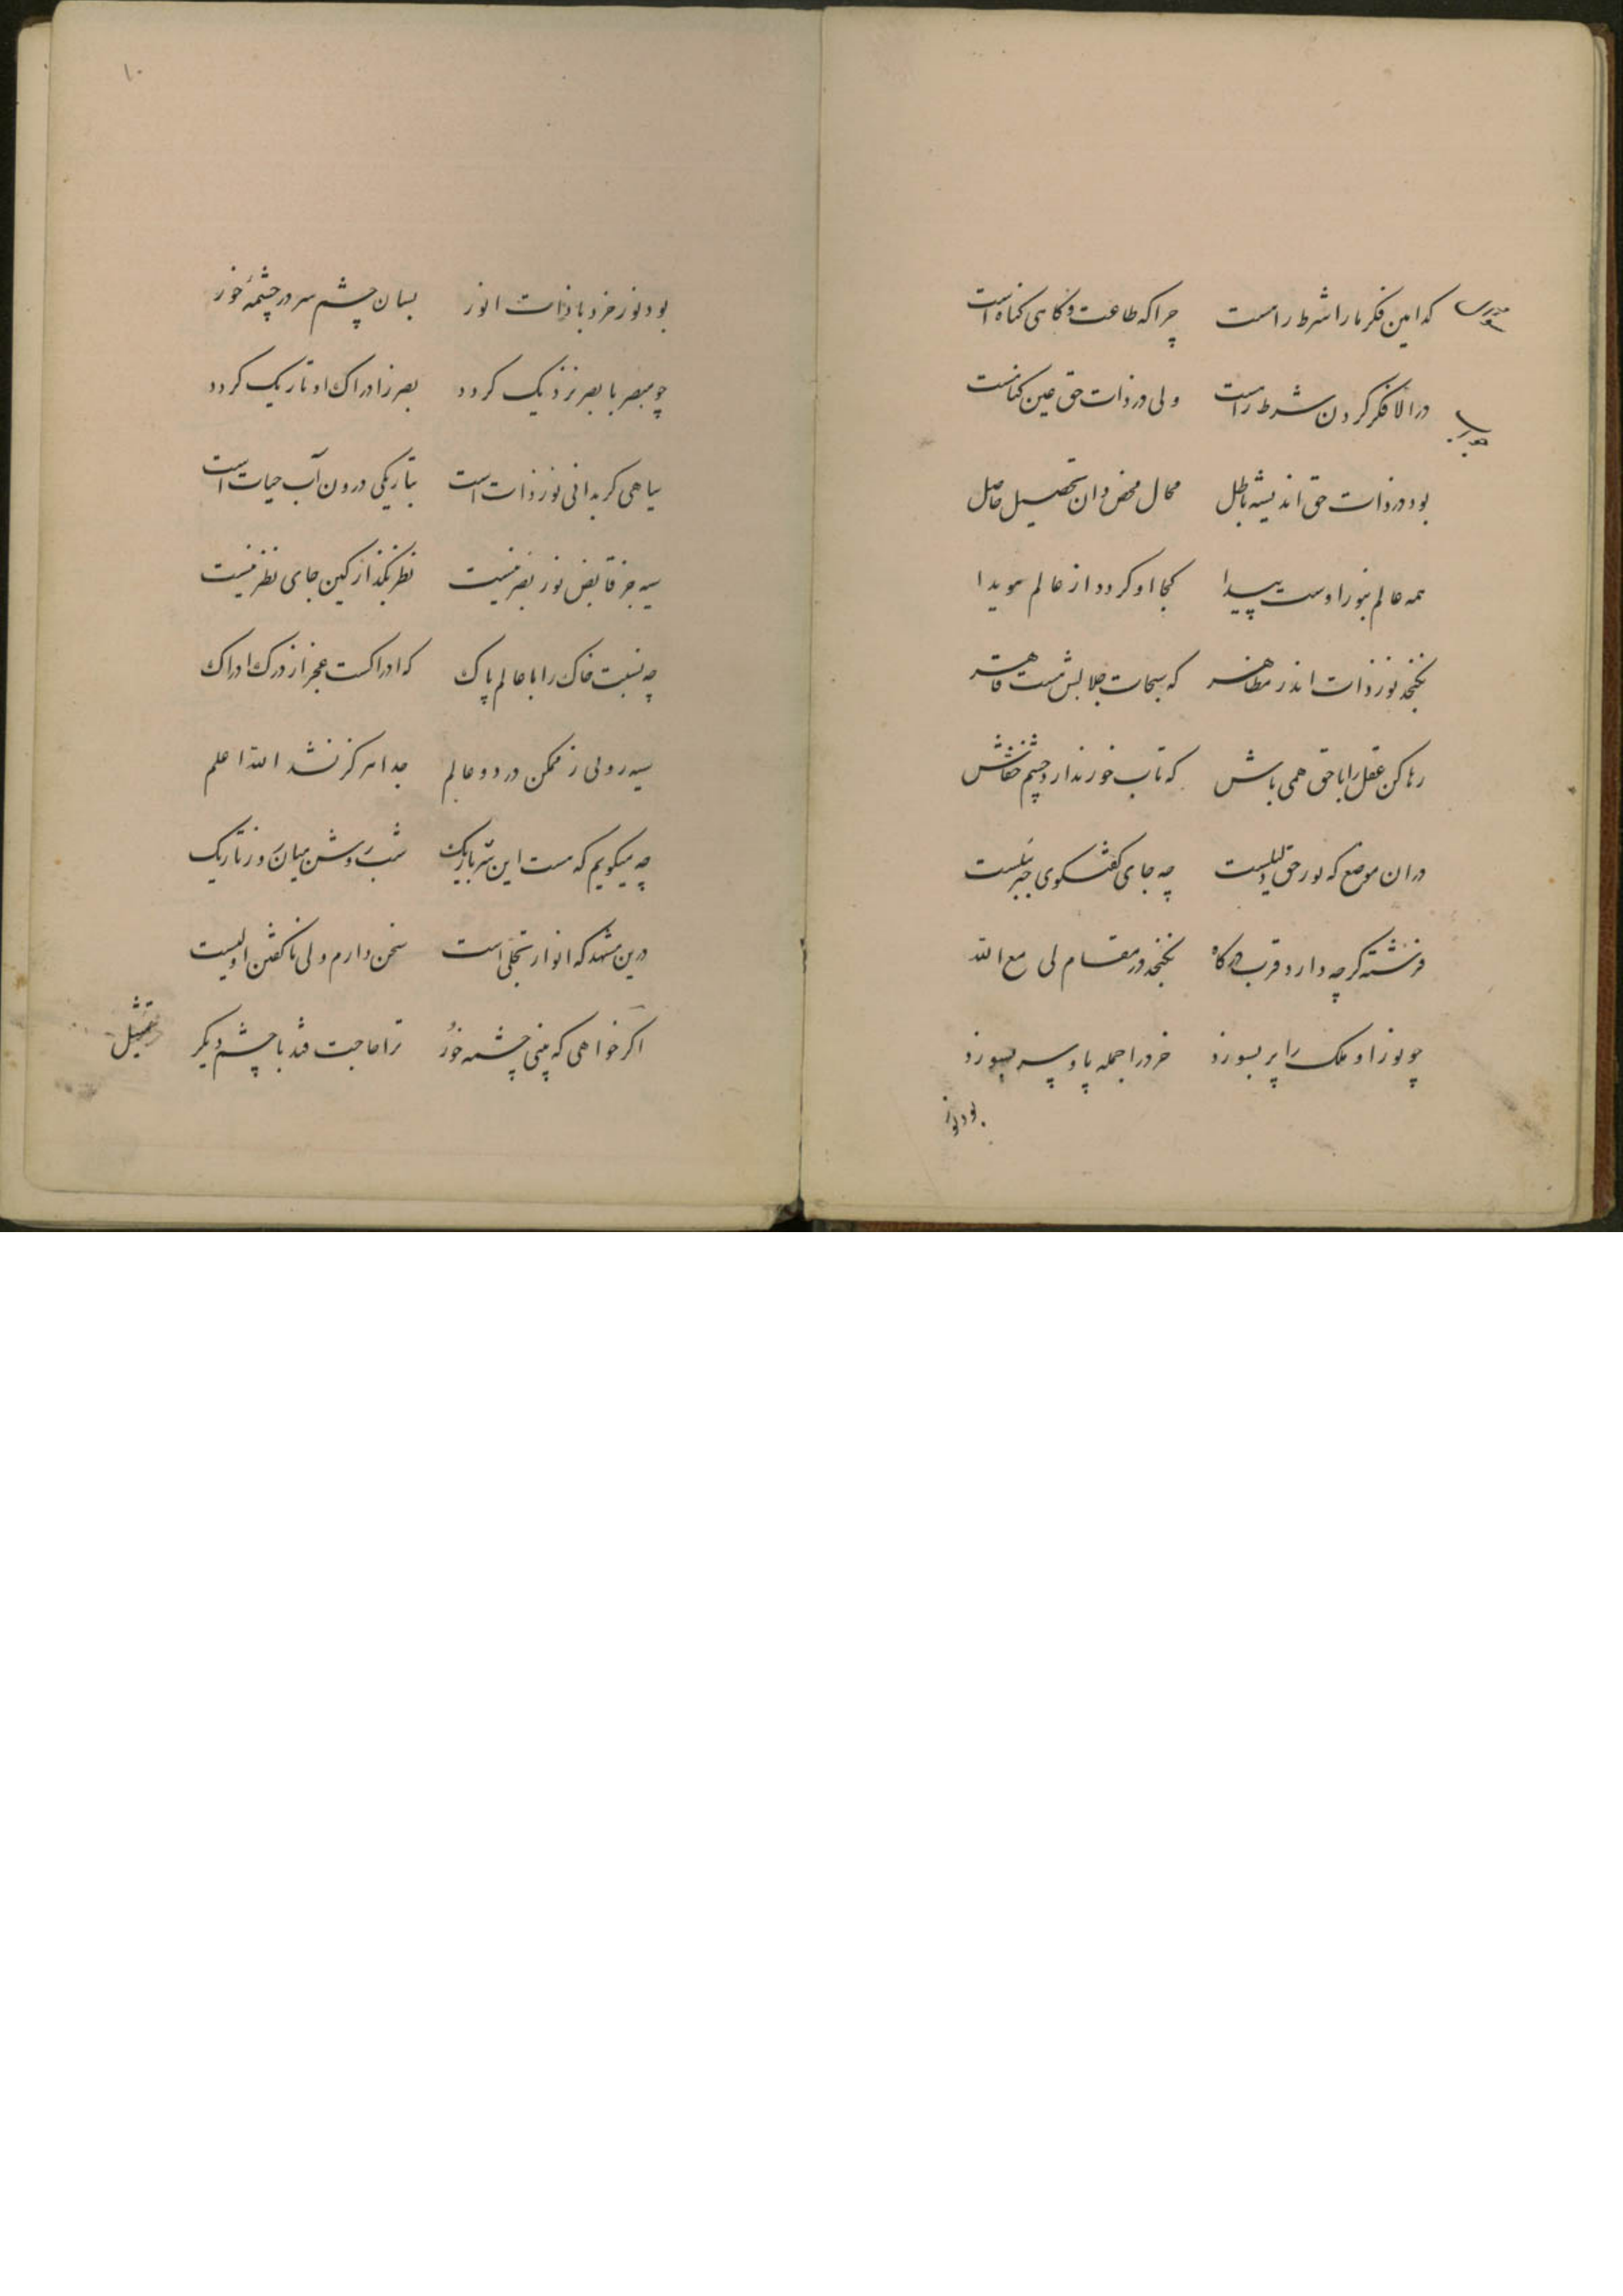 سؤال
کدامین فکر ما را شرط راهست چرا که طاعت و کاهی کناه است
جواب
در الا فکر کردن شرط راه است ولی در ذات حق عین کناهست
بود در ذات حق اندیشه باطل محال محض دان تحصیل حاصل
همه عالم بنور اوست پیدا کجا او کردد از عالم هویدا
نکنجد نور ذات اندر مظاهر که سبحات جلالش هست قاهر
رها کن عقل را با حق همی باش که تاب خور ندارد چشم خفاش
در ان موضع که نور حق دلیلست چه جای کفتکوی جبرئیلست
فرشته کرچه دارد قرب درکاه نکنجد در مقام لی مع الله
چو نور او ملک را پر بسوزد خرد را جمله پا و سر بسوزد
بود نور
۱۰
بود نور خرد با ذات انور بسان چشم سر در چشمهٔ خور
چو مبصر با بصر نزدیک کردد بصر ز ادراک او تاریک کردد
سیاهی کر بدانی نور ذات است بتاریکی درون آب حیات است
سیه جز قابض نور بصر نیست نظر بکذار کین جای نظر نیست
چه نسبت خاک را با عالم پاک که ادراکست عجز از درک ادراک
سیه رویی ز ممکن در دو عالم جدا هرکز نشد الله اعلم
چه میکویم که هست این سر باریک شب روشن میان روز تاریک
درین مشهد که انوار تجلی است سخن دارم ولی ناکفتن اولیست
تمثیل
اکر خواهی که بینی چشمه خور ترا حاجت فتد با چشم دیکر